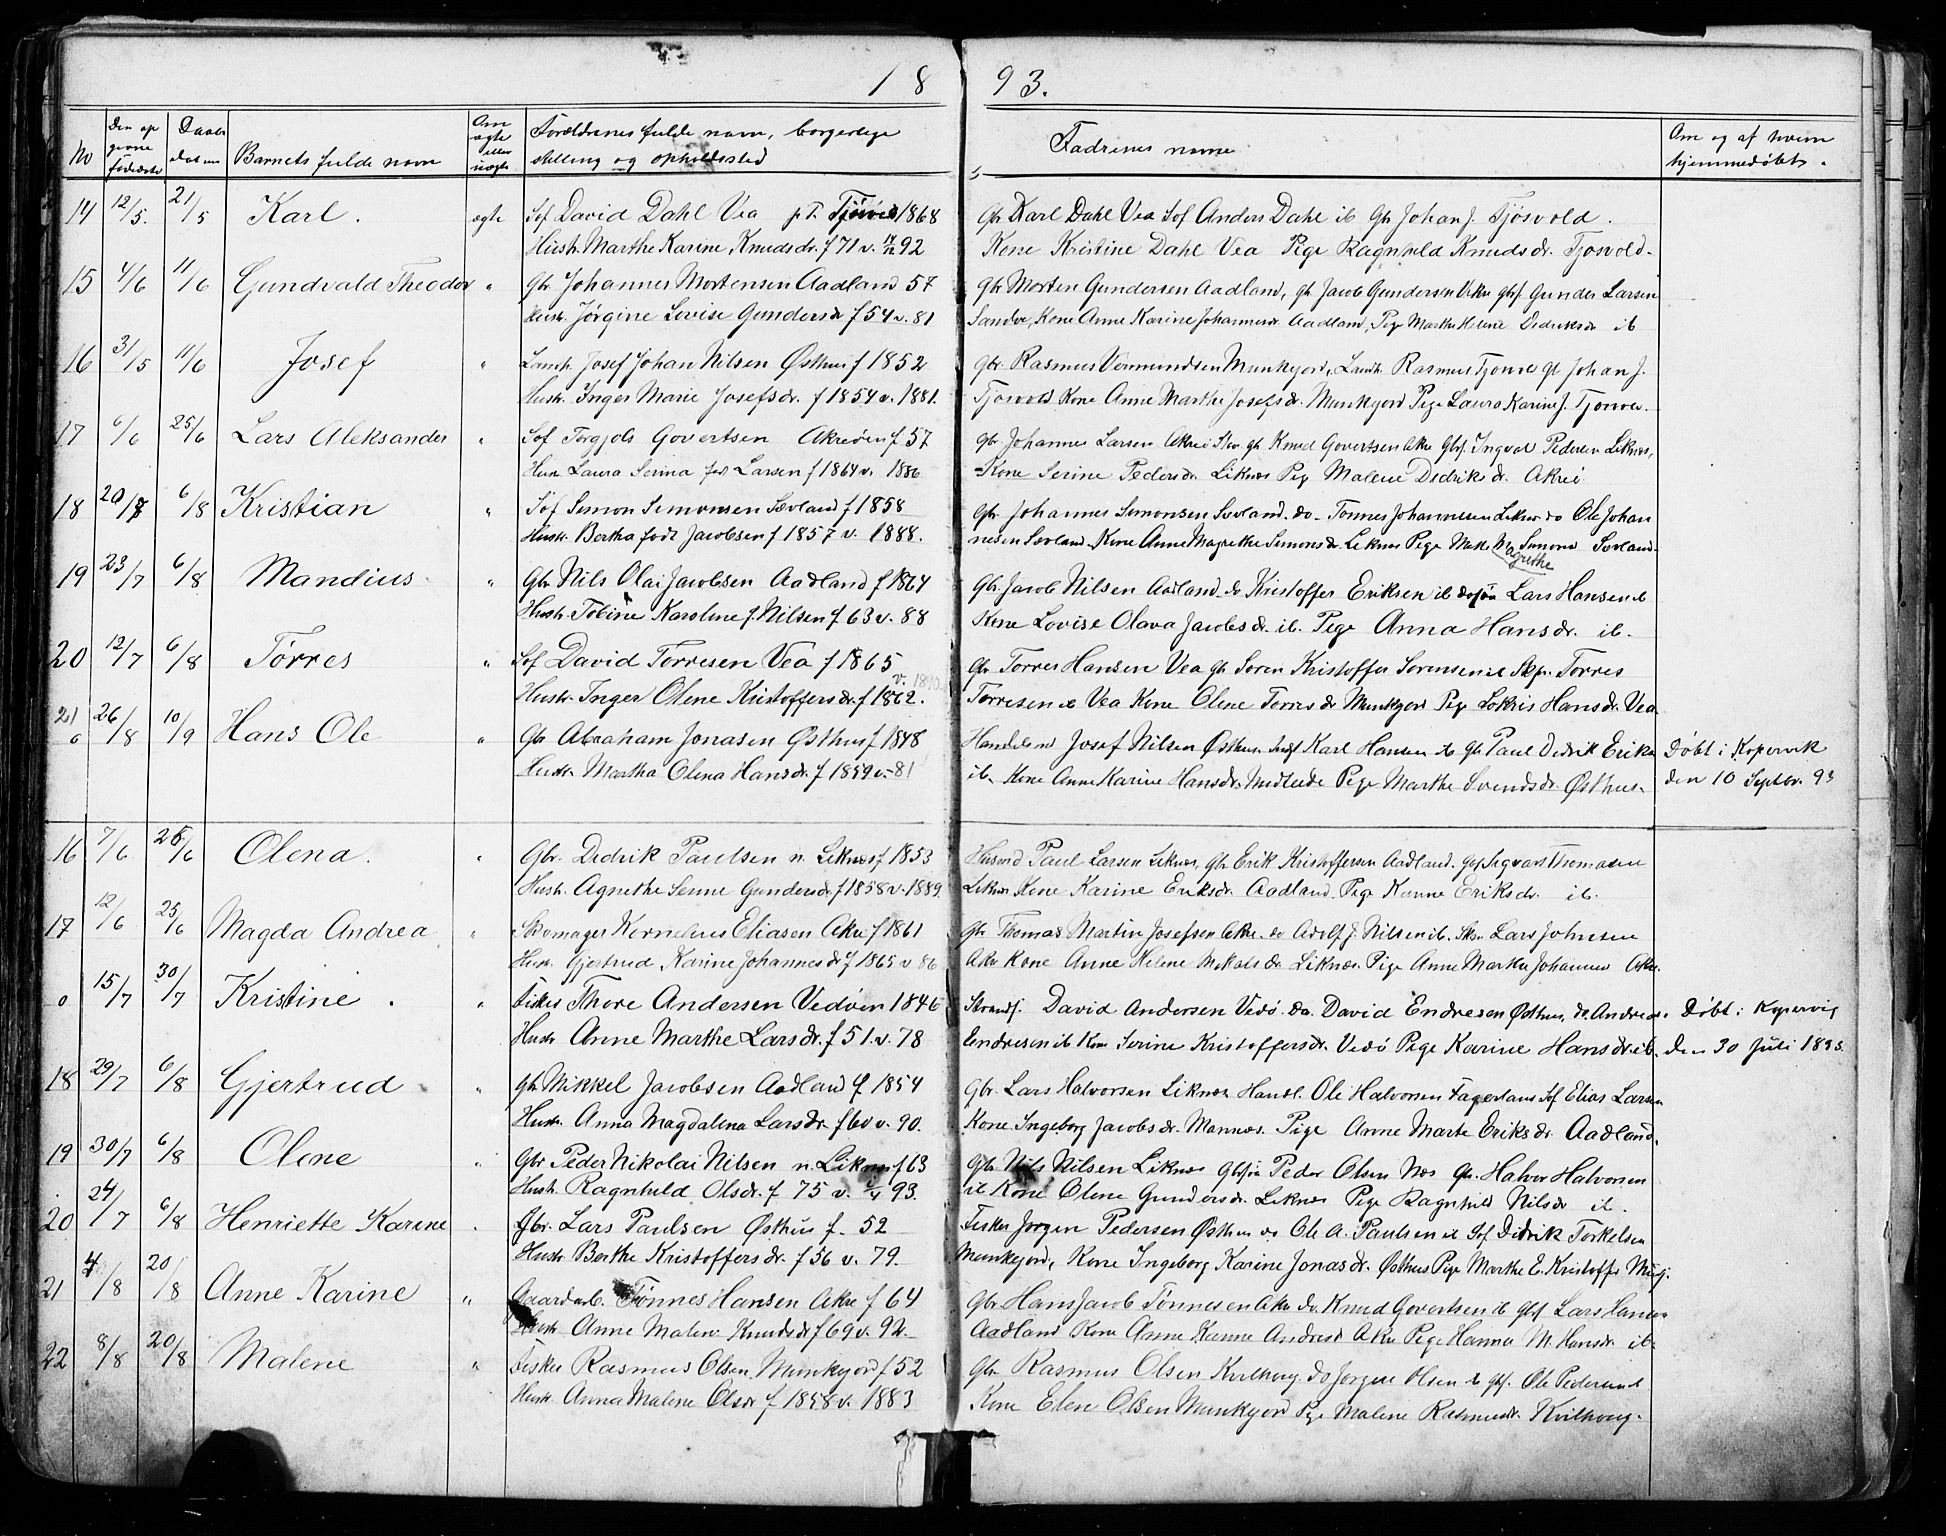 18 93.
No
Den op givne fødselsd
Daabs datum
Barnets fulde navn
Om ægte eller uægte
Forældrenes fulde navn, borgerlige
stilling og opholdssted
Faddernes navne
Om og af hvem
hjemmedøbt.
14 12/5. 21/5 Karl. ægte Søf David Dahl Vea p.T. Tjösvold 1868 Gbr Karl Dahl Vea Søf Anders Dahl ib Gbr Johan J. Tjösvold.
Hustr. Marthe Karine Knudsdr. f 71 v. 92 Kone Kristine Dahl Vea Pige Ragnhild Knudsdr. Tjösvold.
15 4/6 11/6 Gundvald Theodor " Gbr Johannes Mortensen Aadland 57 Gbr Morten Gundersen Aadland, gbr Jacob Gundersen Gunder Larsen
Hustr. Jörgine Lovise Gundersdr f 54 v. 81 Sandve, Kone Anne Karine Johannesdr. Aadland, Pige Marthe Helene Didriksdr ib
16 31/5 11/6 Josef " Josef Johan Nilsen Østhus f 1852 Gbr. Rasmus Vermundsen Munkejord, Rasmus Johan J.
Hustr. Inger Marie Josefsdr. f 1854 v. 1881. Tjösvold Kone Anne Marthe Josefsdr. Munkejord Pige Laura Karine J.
17 6/6 25/6 Lars Aleksander " Søf Torgjols Govertsen Akreöen f 57 Gbr Johannes Larsen Knud Govertsen Akre Ingvol Pedersen Liknes,
Hustr Laura Serina fød Larsen f 1864 v. 1886 Kone Serine Pedersdr. Liknes Pige Malene Didriksdr. Akrei
18 20/7 6/8 Kristian " Söf Simon Simonsen Sævland f 1858 Gbr Johannes Simonsen Sævland. do Tönnes Johannessen Liknes do Ole Johan
Hustr. Bertha født Jacobsen f 1857 v. 1888. nesen Sævland. Kone Anne Magrethe Simonsdr. Liknes Pige Simons Sævland
Magrethe
19 23/7 6/8 Mandius. " Gbr Nils Olai Jacobsen Aadland f 1864 Gbr Jacob Nilsen Aadland. do Kristoffer Eriksen ib Lars Hansen ib
Hustr. Tobine Karoline f. Nilsen f 63 v. 88 Kone Lovise Olava Jacobsdr. ib. Pige Anna Hansdr. ib.
20 12/7 6/8 Törres " Søf David Torresen Vea f 1865 Gbr Torres Hansen Vea gbr Søren Kristoffer Sørensen ib Torres
v. 1890
Hustr. Inger Olene Kristoffersdr. f 1862. Torresen ib Vea Kone Olene Torresdr Munkejord Pige Hansdr. Vea
21 26/8 10/9 Hans Ole " Gbr Abraham Jonasen Østhus f 1848 Josef Nilsen Østhus Karl Hansen ib gbr Paul Didrik Erik Døbt i Kopervik
0 Hustr. Martha Olena Hansdr. f 1859 v. 81 ib. Kone Anne Karine Hansdr. Pige Marthe Svendsdr. Østhus. den 10 Septbr. 93
16 7/6 25/6 Olena. " Gbr. Didrik Paulsen n. Liknes f 1853 Paul Larsen Liknes, gbr Erik Kristoffersen Aadland.
Hustr. Agnethe Gundersdr. f 1858 v. 1889. Liknes Kone Karine Eriksdr. Aadland Pige Karine Eriksdr. ib.
17 12/6 25/6 Magda Andrea " Skomager Kornelius Eliasen Akre f 1861 Gbr Thomas Martin Josefsen Akre. do Adolf J. Nilsen ib. Lars Johnsen
Hustr. Gjertrud Karine Johannesdr f 1865 v 86 Akre Kone Anne Helene Liknes. Pige Anne Marthe Johannes Akre.
0 15/7 30/7 Kristine. " Fisker Thore Andersen Vedøen 1846 Strands. David Andersen Vedö. do. David Endresen Østhus, do. Andreas Døbt i Kopervig
Hustr Anne Marthe Larsdr. f 51. v. 78 Endresen ib Kone Serine Kristoffersdr. Vedö Pige Karine Hansdr. ib. den 30 Juli 1893.
18 29/7 6/8 Gjertrud. " Gbr. Mikkel Jacobsen Aadland f 1854 Gbr. Lars Halvorsen Liknes Handl. Ole Halvorsen Søf Elias Larsen
Hustr. Anna Magdalena Larsdr f 60 v. 90. Kone Ingeborg Jacobsdr. Mannes. Pige Anne Marte Eriksdr. Aadland.
19 30/7 6/8 Olene " Gbr Peder Nikolai Nilsen n. Liknes f 63 Gbr Nils Nilsen Liknes Peder Olsen Næs Gbr. Halvor Halvorsen
Hustr. Ragnhild Olsdr. f 75 v. 93. ib Kone Olene Gundersdr. Liknes Pige Ragnhild Nilsdr ib.
20 24/7 6/8 Henriette Karine " Gbr. Lars Paulsen Østhus f. 52 Fisker Jørgen Pedersen Østhus do Ole A. Paulsen ib Søf Didrik Torkelsen
Hustr Berthe Kristoffersdr. f 56 v. 79. Munkejord, Kone Ingeborg Karine Jonasdr. Østhus Pige Marthe E. Kristoffer
21 4/8 20/8 Anne Karine " Gaardarb. Tönnes Hansen Akre f 64 Gbr. Hans Jacob Tönnesen Akre do. Knud Govertsen ib Lars Hansen
Hustr Anne Malene Knudsdr f 69 v. 92. Aadland Kone Anne Karine Andreasd Akre Pige Hanna M. Hansdr. ib.
22 8/8 20/8 Malene " Fisker Rasmus Olsen. Munkejord f 52 Gbr. Rasmus Olsen Kvilhoug do Jørgen Olsen ib Ole Pedersen ib
Hustr. Anna Malene Olsdr f 1858 v. 1883 Kone Elen Olsen Munkejord Pige Malene Rasmusdr. Kvilhoug.